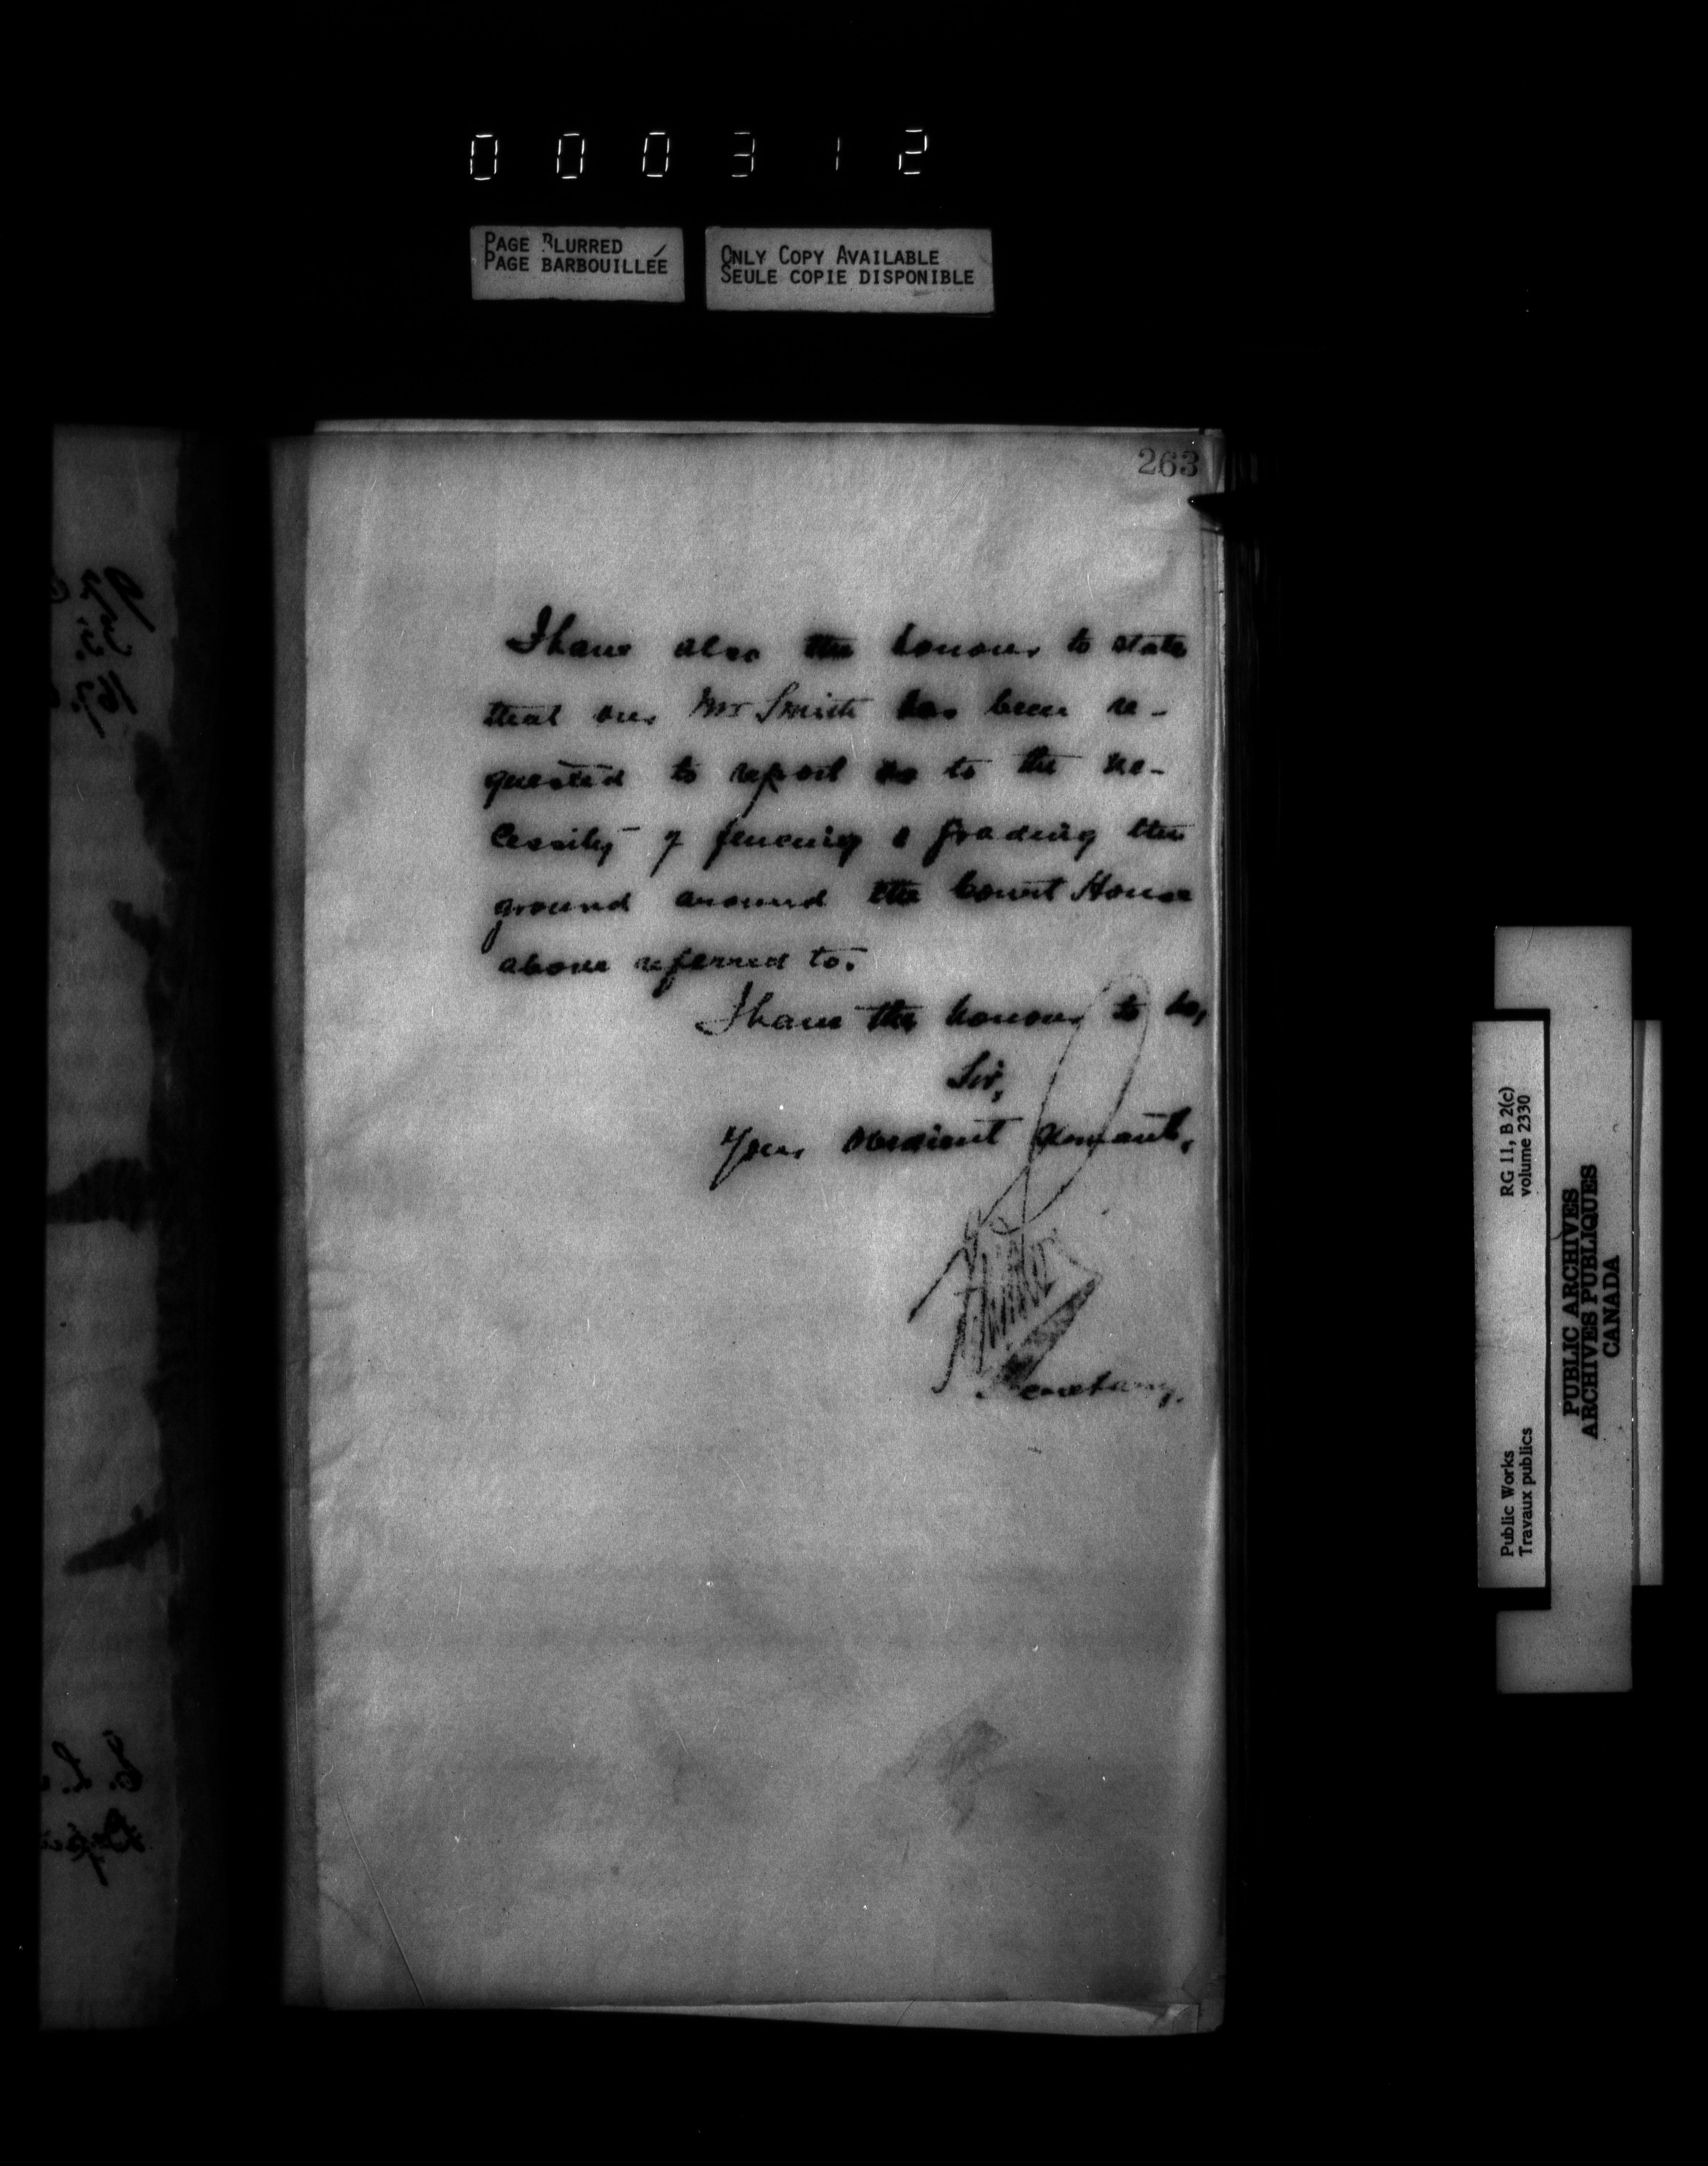 000312
PAGE BLURRED
PAGE BARBOUILLÉE
ONLY COPY AVAILABLE
SEULE COPIE DISPONIBLE
263
I have also the honour to state
that our Mr Smith has been re-
quested to report as to the ne-
cessity of fencing & grading the
ground around the Court House
above referred to.
I have the honour to be,
Sir,
Your obedient servant,
Secretary.
Public Works
Travaux publics
RG 11, B 2(c)
volume 2330
PUBLIC ARCHIVES
ARCHIVES PUBLIQUES
CANADA